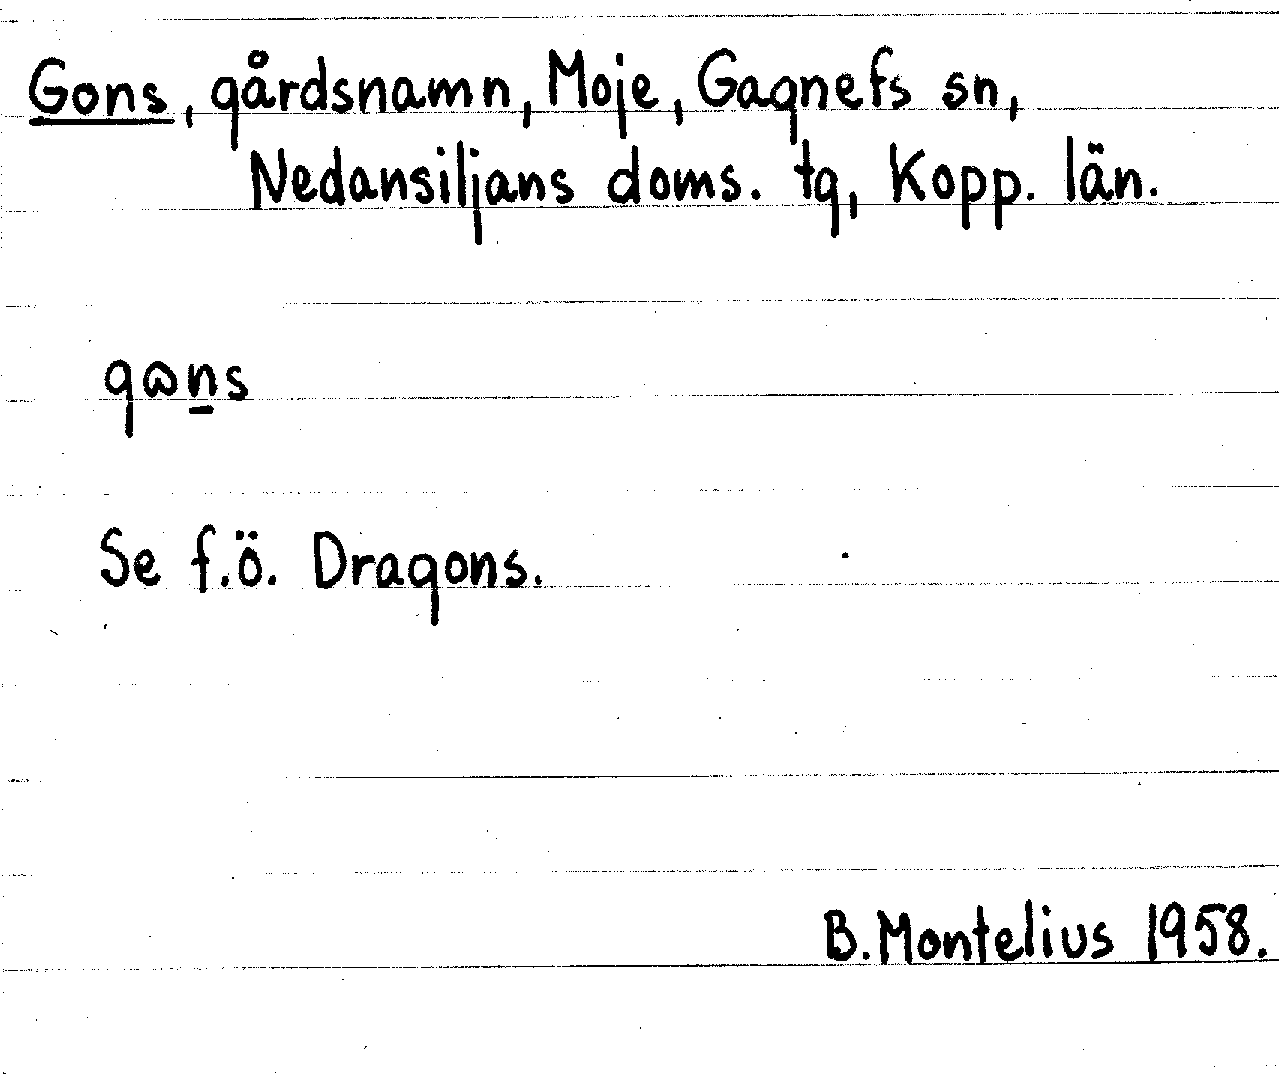 Gons, gårdsnamn, Moje, Gagnefs sn,
Nedansiljans doms. tg, Kopp. län.
gɷn̲s
Se f.ö. Dragons.
B. Montelius 1958.